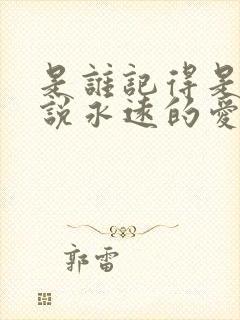 是誰記得是誰
說永遠的愛
郭雷